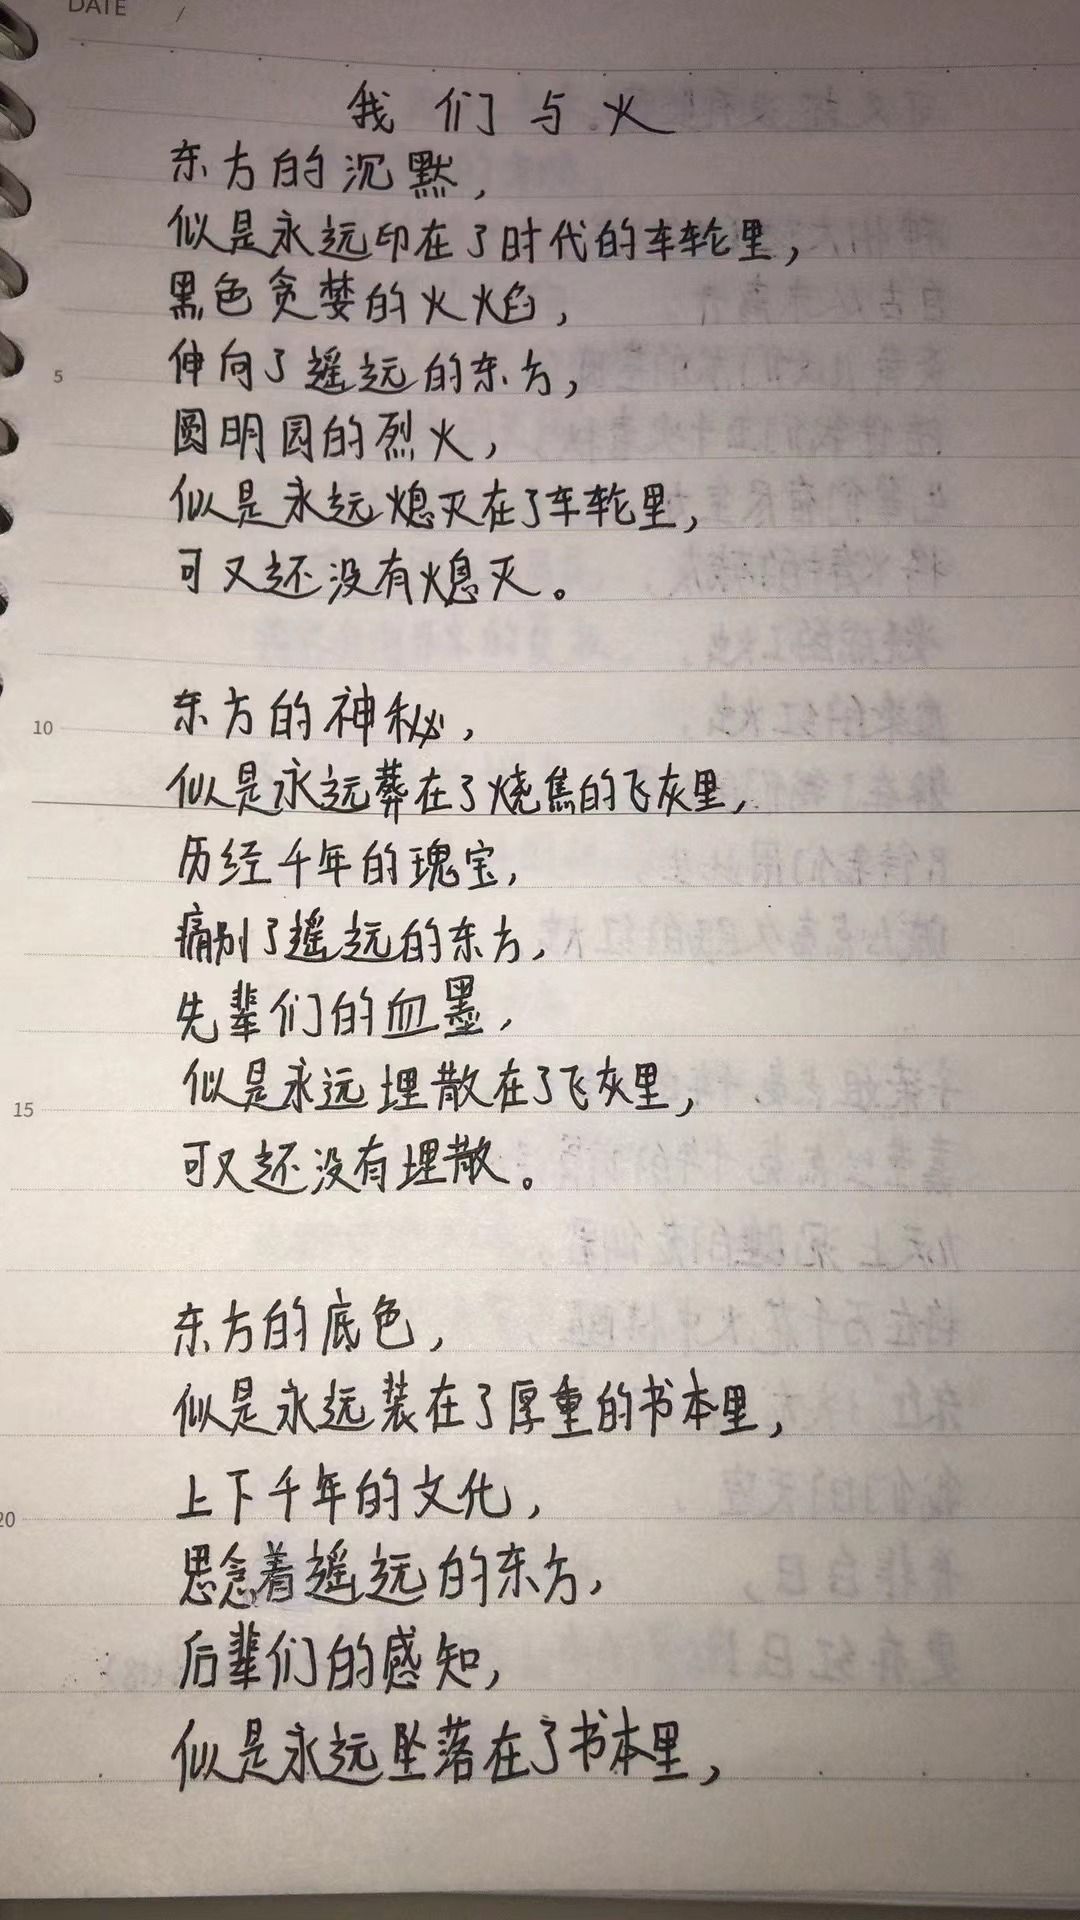 DATE /
我们与火
东方的沉默，
似是永远印在了时代的车轮里，
黑色贪婪的火焰，
5 伸向了遥远的东方，
圆明园的烈火，
似是永远熄灭在了车轮里，
可又还没有熄灭。
10 东方的神秘，
似是永远葬在了烧焦的飞灰里，
历经千年的瑰宝，
痛别了遥远的东方，
先辈们的血墨，
15 似是永远埋散在了飞灰里，
可又还没有埋散。
东方的底色，
似是永远装在了厚重的书本里，
20 上下千年的文化，
思念着遥远的东方，
后辈们的感知，
似是永远坠落在了书本里，